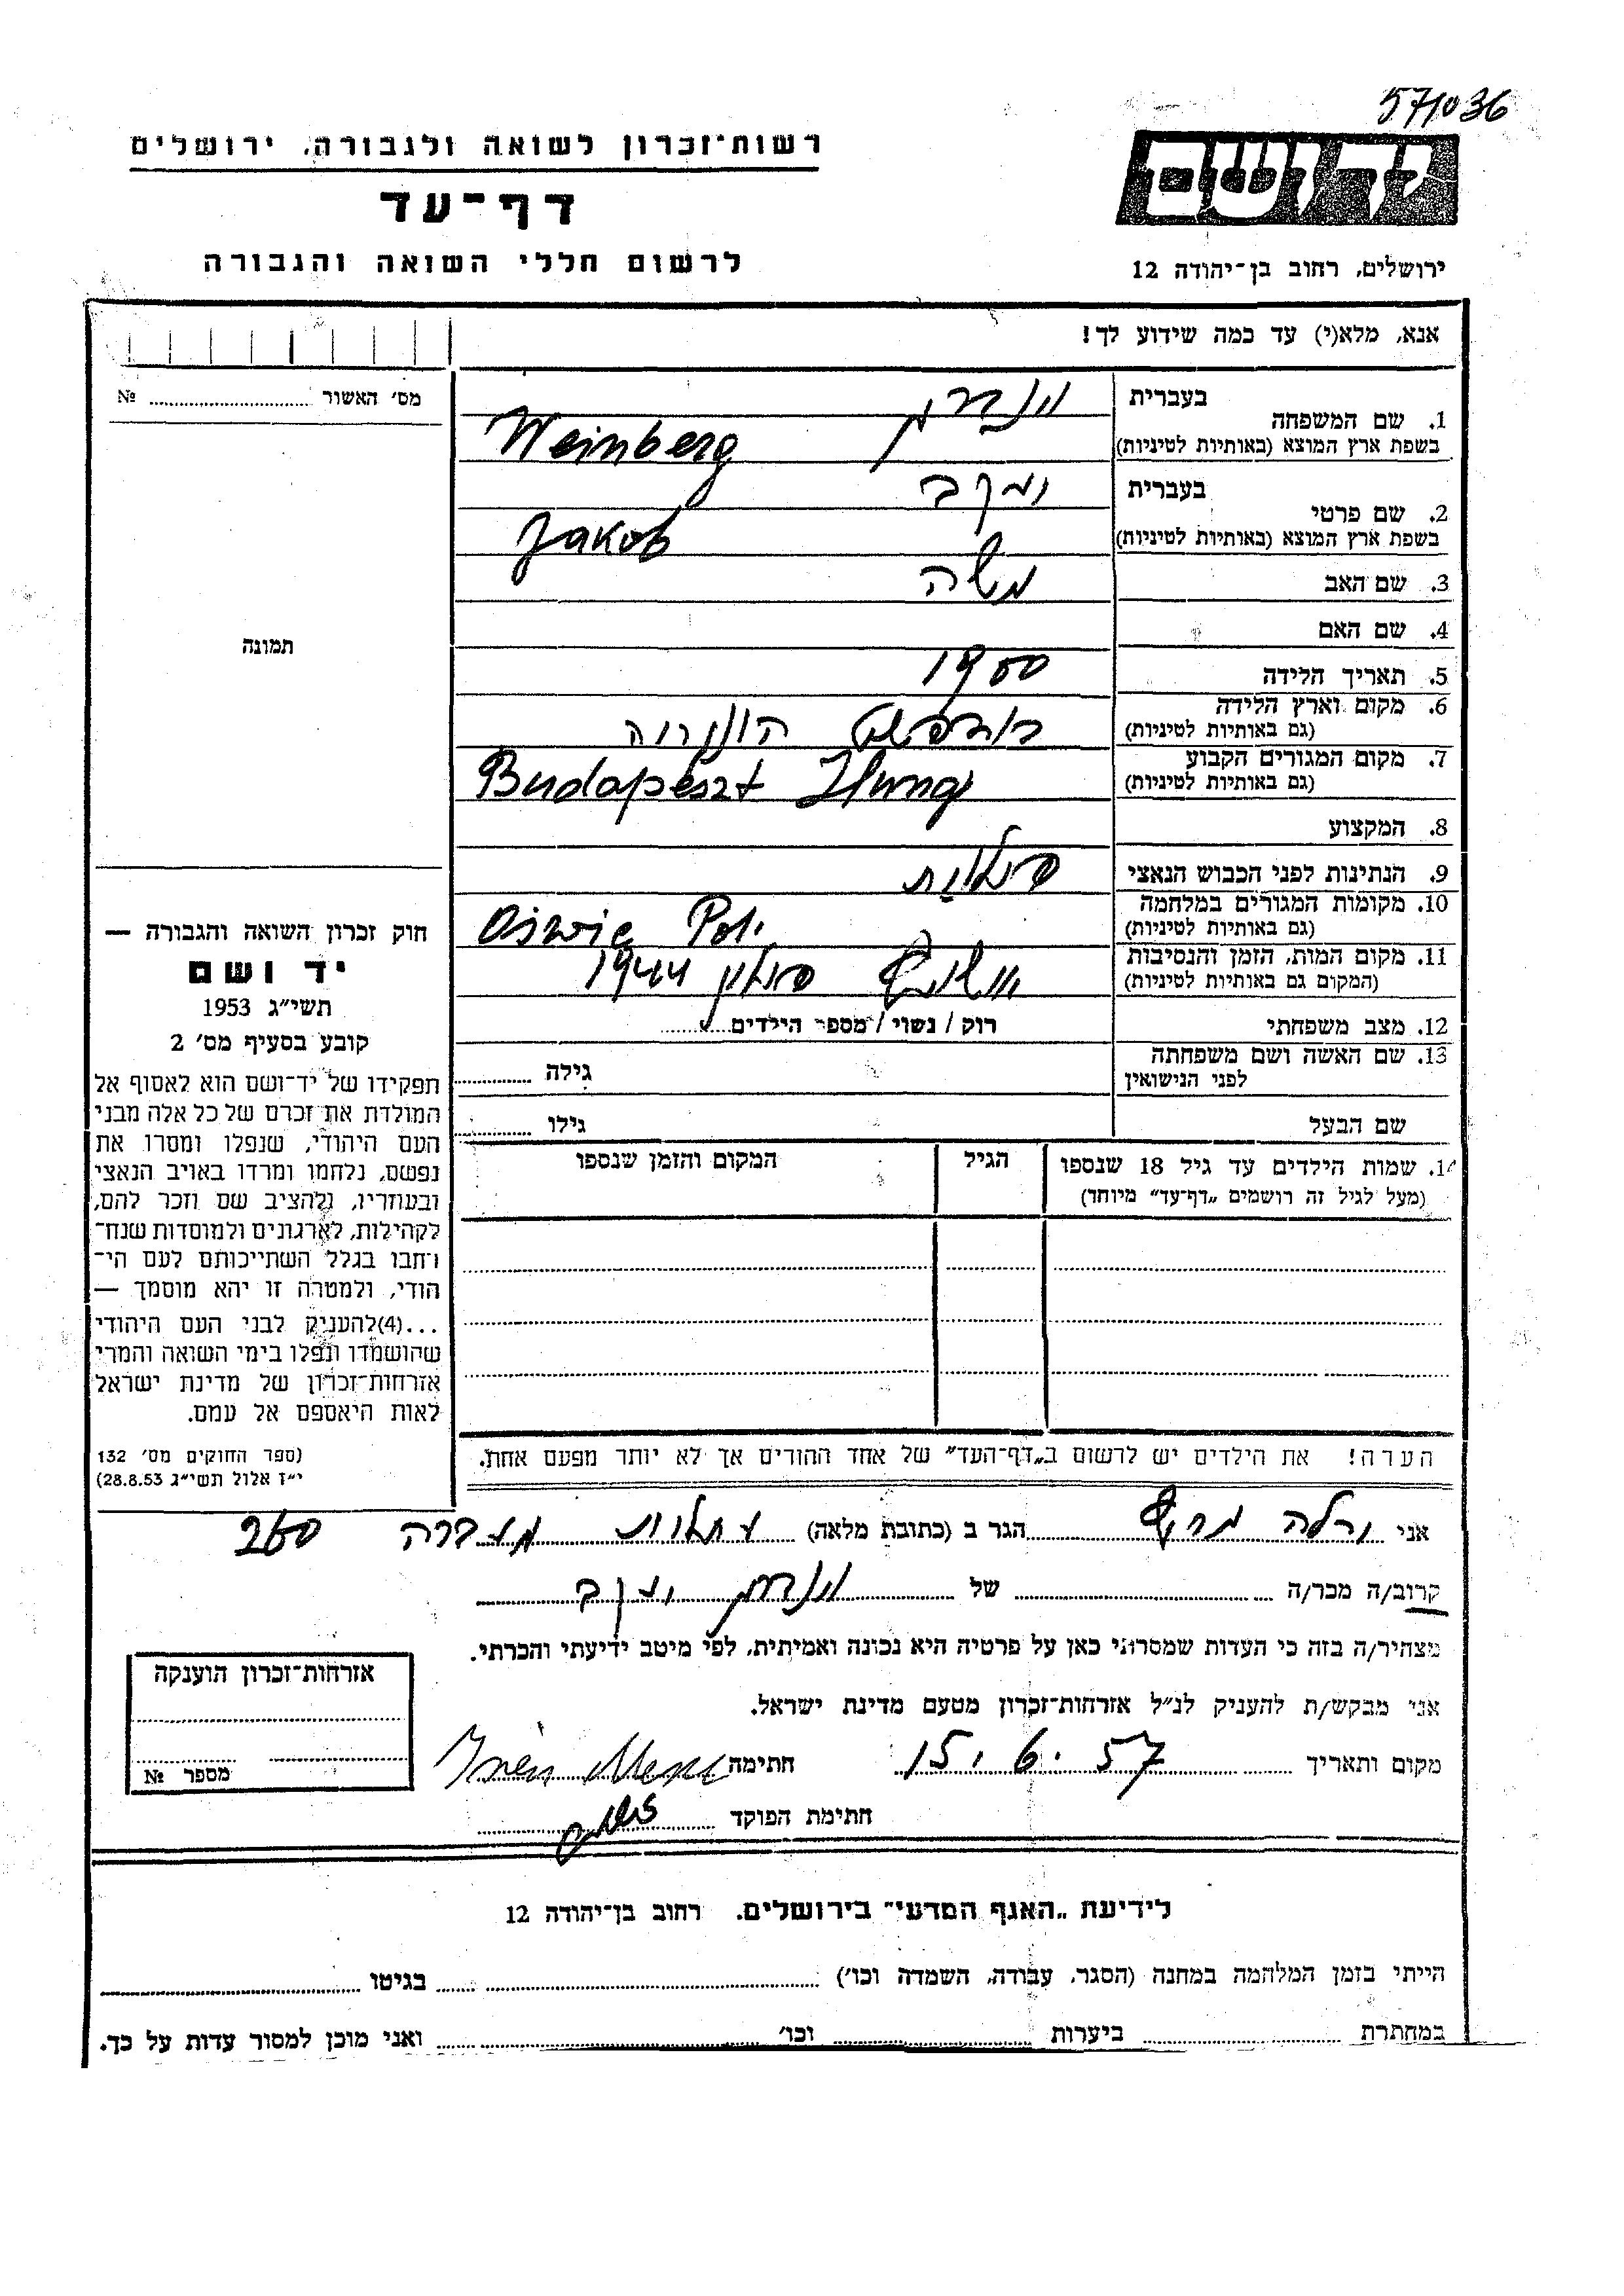 571036
רשות־זכרון לשואה ולגבורה, ירושלים
דף־עד
לרשום חללי השואה והגבורה
יד ושם
ירושלים, רחוב בן־יהודה 12
אנא, מלא(י) עד כמה שידוע לך!
מס' האשור № 
תמונה
חוק זכרון השואה והגבורה —
יד ושם
תשי"ג 1953
קובע בסעיף מס' 2
תפקידו של יד־ושם הוא לאסוף אל
המולדת את זכרם של כל אלה מבני
העם היהודי, שנפלו ומסרו את
נפשם, נלחמו ומרדו באויב הנאצי
ובעוזריו, ולהציב שם וזכר להם,
לקהילות, לארגונים ולמוסדות שנח־
רחבו בגלל השתייכותם לעם הי־
הודי, ולמטרה זו יהא מוסמך —
...(4)להעניק לבני העם היהודי
שהושמדו ונפלו בימי השואה והמרי
אזרחות־זכרון של מדינת ישראל
לאות היאספם אל עמם.
(ספר החוקים מס' 132
י"ז אלול תשי"ג 28.8.53)
בעברית
1. שם המשפחה
בשפת ארץ המוצא (באותיות לטיניות) Weinberg
בעברית
2. שם פרטי
בשפת ארץ המוצא (באותיות לטיניות) Jakob
3. שם האב משה
4. שם האם
5. תאריך הלידה 1900
6. מקום וארץ הלידה בודפשט
(גם באותיות לטיניות)
7. מקום המגורים הקבוע Budapeszt
(גם באותיות לטיניות)
8. המקצוע
9. הנתינות לפני הכבוש הנאצי
10. מקומות המגורים במלחמה Pol.
(גם באותיות לטיניות)
11. מקום המות, הזמן והנסיבות פולין 1944
(המקום גם באותיות לטיניות)
12. מצב משפחתי רוק / נשוי / מספר הילדים
13. שם האשה ושם משפחתה גילה
לפני הנישואין
שם הבעל גילו
14. שמות הילדים עד גיל 18 שנספו הגיל המקום והזמן שנספו
(מעל לגיל זה רושמים „דף־עד" מיוחד)
הערה! את הילדים יש לרשום ב„דף־העד" של אחד ההורים אך לא יותר מפעם אחת.
אני הגר ב (כתובת מלאה) 260
קרוב/ה מכר/ה של
מצהיר/ה בזה כי העדות שמסרתי כאן על פרטיה היא נכונה ואמיתית, לפי מיטב ידיעתי והכרתי.
אני מבקש/ת להעניק לנ"ל אזרחות־זכרון מטעם מדינת ישראל.
מקום ותאריך 15.6.57 חתימה
חתימת הפוקד
אזרחות־זכרון הוענקה
מספר №
לידיעת „האגף המדעי" בירושלים, רחוב בן־יהודה 12
הייתי בזמן המלחמה במחנה (הסגר, עבודה, השמדה וכו') בגיטו
במחתרת ביערות וכו' ואני מוכן למסור עדות על כך.